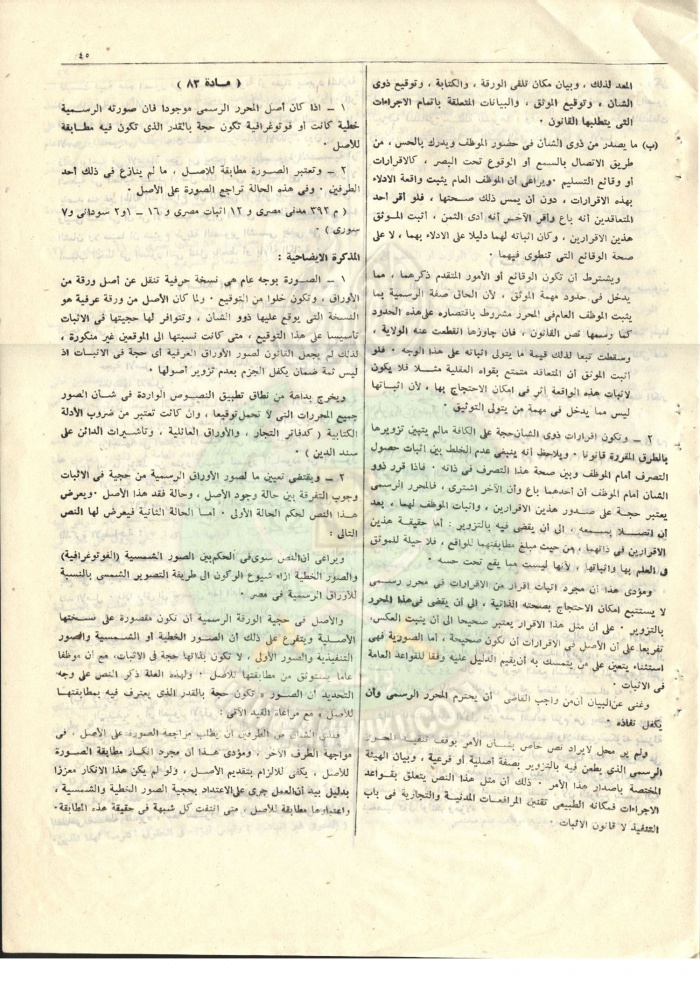 ٤٥
المعد لذلك ، وبيان مكان تلقى الورقة ، والكتابة ، وتوقيع ذوى
الشأن ، وتوقيع الموثق ، والبيانات المتعلقة باتمام الاجراءات
التى يتطلبها القانون ٠
(ب) ما يصدر من ذوى الشأن فى حضور الموظف ويدرك بالحس ، من
طريق الاتصال بالسمع أو الوقوع تحت البصر ، كالاقرارات
أو وقائع التسليم ٠ ويراعى أن الموظف العام يثبت واقعة الادلاء
بهذه الاقرارات ، دون أن يمس ذلك صحتها ، فلو أقر أحد
المتعاقدين أنه باع وأقر الآخر أنه أدى الثمن ، أثبت الموثق
هذين الاقرارين ، وكان اثباته لهما دليلا على الادلاء بهما ، لا على
صحة الوقائع التى تنطوى فيهما ٠
ويشترط أن تكون الوقائع أو الأمور المتقدم ذكرهما ، مما
يدخل فى حدود مهمة الموثق ، لأن الحاق صفة الرسمية بما
يثبت الموظف العام فى المحرر مشروط باقتصاره على هذه الحدود
كما رسمها نص القانون ، فان جاوزها انقطعت عنه الولاية ،
وسقطت تبعا لذلك قيمة ما يتولى اثباته على هذا الوجه ٠ فلو
أثبت الموثق أن المتعاقد متمتع بقواه العقلية مثلا فلا يكون
لاثبات هذه الواقعة أثر فى امكان الاحتجاج بها ، لأن اثباتها
ليس مما يدخل فى مهمة من يتولى التوثيق ٠
٢ ــ وتكون اقرارات ذوى الشأن حجة على الكافة مالم يتبين تزويرها
بالطرق المقررة قانونا ٠ ويلاحظ أنه ينبغى عدم الخلط بين اثبات حصول
التصرف أمام الموظف وبين صحة هذا التصرف فى ذاته ٠ فاذا قرر ذوو
الشأن أمام الموظف أن أحدهما باع وأن الآخر اشترى ، فالمحرر الرسمى
يعتبر حجة على صدور هذين الاقرارين ، واثبات الموظف لهما ، بعد
أن اتصلا بسمعه ، الى أن يقضى فيه بالتزوير ؛ أما حقيقة هذين
الاقرارين فى ذاتهما ، من حيث مبلغ مطابقتهما للواقع ، فلا حيلة للموثق
فى العلم بها واثباتها ، لأنها ليست مما يقع تحت حسه ٠
ومؤدى هذا أن مجرد اثبات اقرار من الاقرارات فى محرر رسمى
لا يستتبع امكان الاحتجاج بصحته الذاتية ، الى أن يقضى فى هذا المحرر
بالتزوير ٠ على أن مثل هذا الاقرار يعتبر صحيحا الى أن يثبت العكس ،
تفريعا على أن الأصل فى الاقرارات أن تكون صحيحة ، أما الصورية فهى
استثناء يتعين على من يتمسك به أن يقيم الدليل عليه وفقا للقواعد العامة
فى الاثبات ٠
وغنى عن البيان أن من واجب القاضى أن يحترم المحرر الرسمى وأن
يكفل نفاذه ٠
ولم ير محل لايراد نص خاص بشأن الأمر بوقف تنفيذ المحرر
الرسمى الذى يطعن فيه بالتزوير بصفة أصلية أو فرعية ، وبيان الهيئة
المختصة باصدار هذا الأمر ٠ ذلك أن مثل هذا النص يتعلق بقواعد
الاجراءات فمكانه الطبيعى تقنين المرافعات المدنية والتجارية فى باب
التنفيذ لا قانون الاثبات ٠
( مادة ٨٣ )
١ ــ اذا كان أصل المحرر الرسمى موجودا فان صورته الرسمية
خطية كانت أو فوتوغرافية تكون حجة بالقدر الذى تكون فيه مطابقة
للأصل ٠
٢ ــ وتعتبر الصورة مطابقة للاصل ، ما لم ينازع فى ذلك أحد
الطرفين ٠ وفى هذه الحالة تراجع الصورة على الأصل ٠
( م ٣٩٢ مدنى مصرى و ١٢ اثبات مصرى و ١٦ ــ ١و٢ سودانى و٧
سورى ) ٠
المذكرة الايضاحية :
١ ــ الصورة بوجه عام هى نسخة حرفية تنقل عن أصل ورقة من
الأوراق ، وتكون خلوا من التوقيع ٠ ولما كان الأصل من ورقة عرفية هو
النسخة التى يوقع عليها ذوو الشان ، وتتوافر لها حجيتها فى الاثبات
تأسيسا على هذا التوقيع ، متى كانت نسبتها الى الموقعين غير منكورة ،
لذلك لم يجعل القانون لصور الأوراق العرفية أى حجة فى الاثبات اذ
ليس ثمة ضمان يكفل الجزم بعدم تزوير أصولها ٠
ويخرج بداهة من نطاق تطبيق النصوص الواردة فى شأن الصور
جميع المحررات التى لا تحمل توقيعا ، وان كانت تعتبر من ضروب الأدلة
الكتابية ( كدفاتر التجار ، والأوراق العائلية ، وتأشيرات الدائن على
سند الدين ) ٠
٢ ــ ويقتضى تعيين ما لصور الأوراق الرسمية من حجية فى الاثبات
وجوب التفرقة بين حالة وجود الأصل ، وحالة فقد هذا الأصل ٠ ويعرض
هذا النص لحكم الحالة الأولى ٠ أما الحالة الثانية فيعرض لها النص
التالى :
ويراعى أن النص سوى فى الحكم بين الصور الشمسية (الفوتوغرافية)
والصور الخطية ازاء شيوع الركون الى طريقة التصوير الشمسى بالنسبة
للأوراق الرسمية فى مصر ٠
والأصل فى حجية الورقة الرسمية أن تكون مقصورة على نسختها
الأصلية ويتفرع على ذلك أن الصور الخطية أو الشمسية والصور
التنفيذية والصور الأولى ، لا تكون بذاتها حجة فى الاثبات، مع أن موظفا
عاما يستوثق من مطابقتها للأصل ٠ ولهذه العلة ذكر النص على وجه
التحديد أن الصورة « تكون حجة بالقدر الذى يعترف فيه بمطابقتها
للأصل » مع مراعاة القيد الآتى :
فلذى الشأن من الطرفين أن يطلب مراجعة الصورة على الأصل ، فى
مواجهة الطرف الآخر ٠ ومؤدى هذا أن مجرد انكار مطابقة الصورة
للأصل ، يكفى للالزام بتقديم الأصل ، ولو لم يكن هذا الانكار معززا
بدليل بيد أن العمل جرى على الاعتداد بحجية الصور الخطية والشمسية ،
واعتبارها مطابقة للأصل ، متى انتفت كل شبهة فى حقيقة هذه المطابقة٠